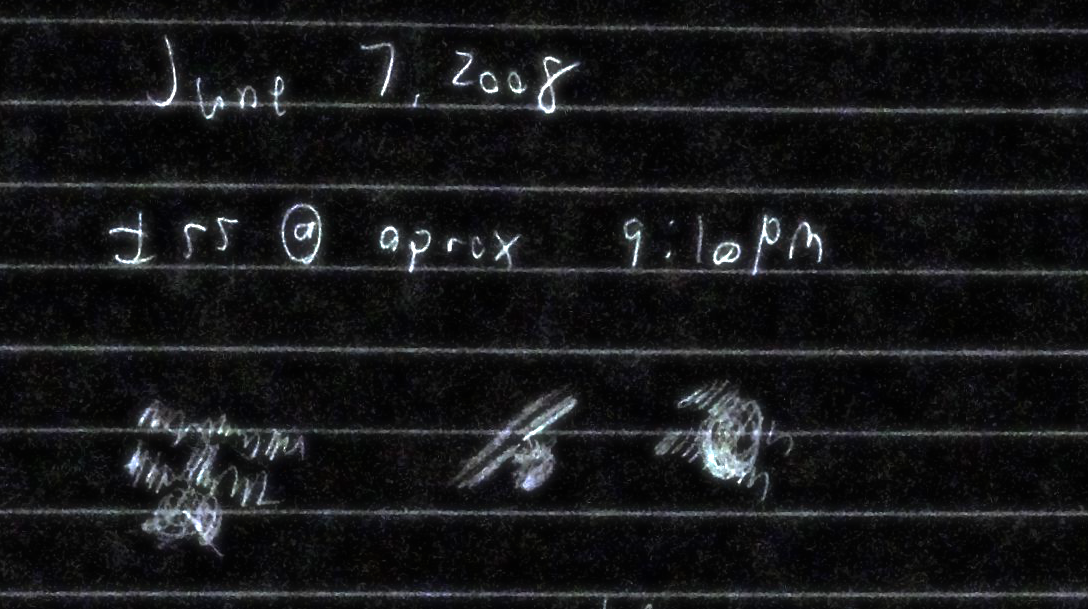 June 7, 2008
ISS @ aprox 9:10pm